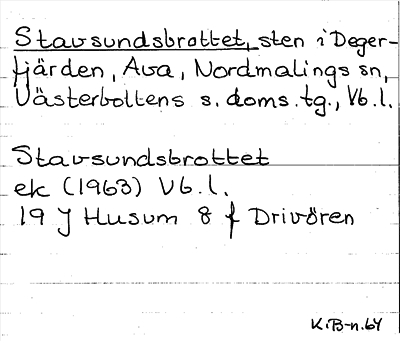 Stavsundsbrottet, sten i Deger-
fjärden, Ava, Nordmalings sn,
Västerbottens s. doms. tg., Vb. l.
Stavsundsbrottet
ek (1963) Vb. l.
19 J Husum 8 f Drivören
K.B-n. 64